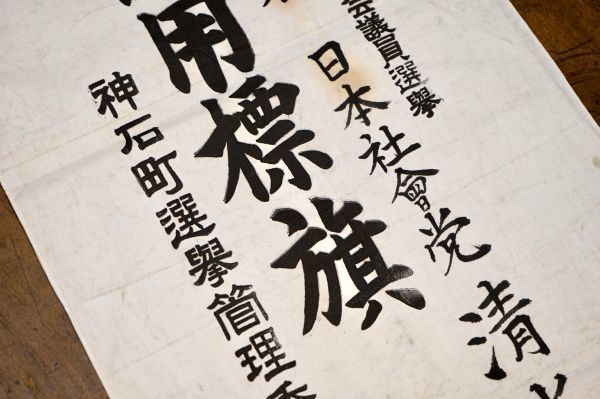 会議員選挙
日本社會党 清
用標旗
神石町選挙管理委